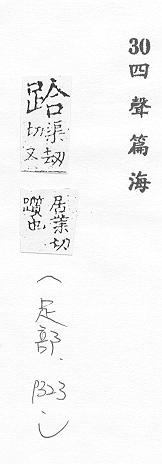 30四聲篇海
跲渠劫切又
居業切躓也
(足部.p323)